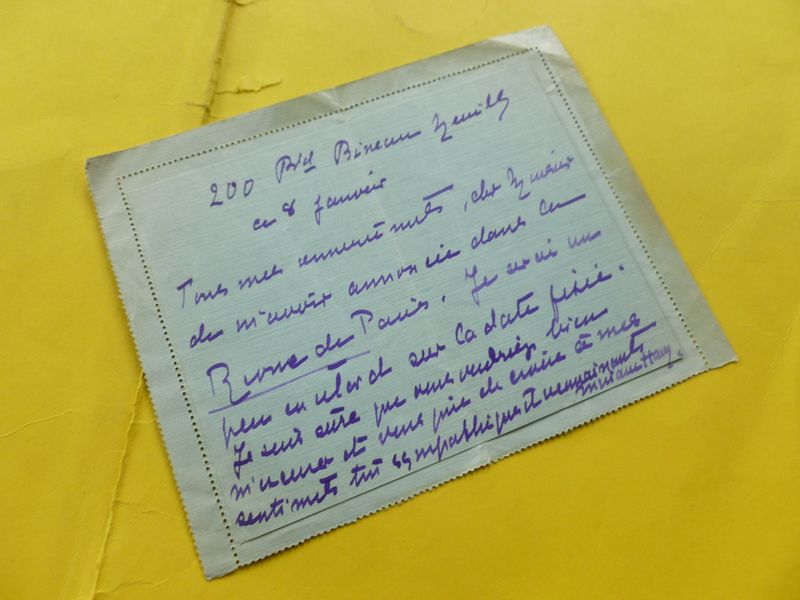 200 Bd Bineau Neuilly
ce 8 Janvier
Tous mes remerciements, cher Monsieur
de m'avoir annoncée dans la
Revue de Paris. Je serai un
peu en retard sur la date fixée.
Je suis sûre que vous voudrez bien
m'excuser et vous prie de croire à mes
sentiments très sympathiques et reconnaissants
Myriam Harry.